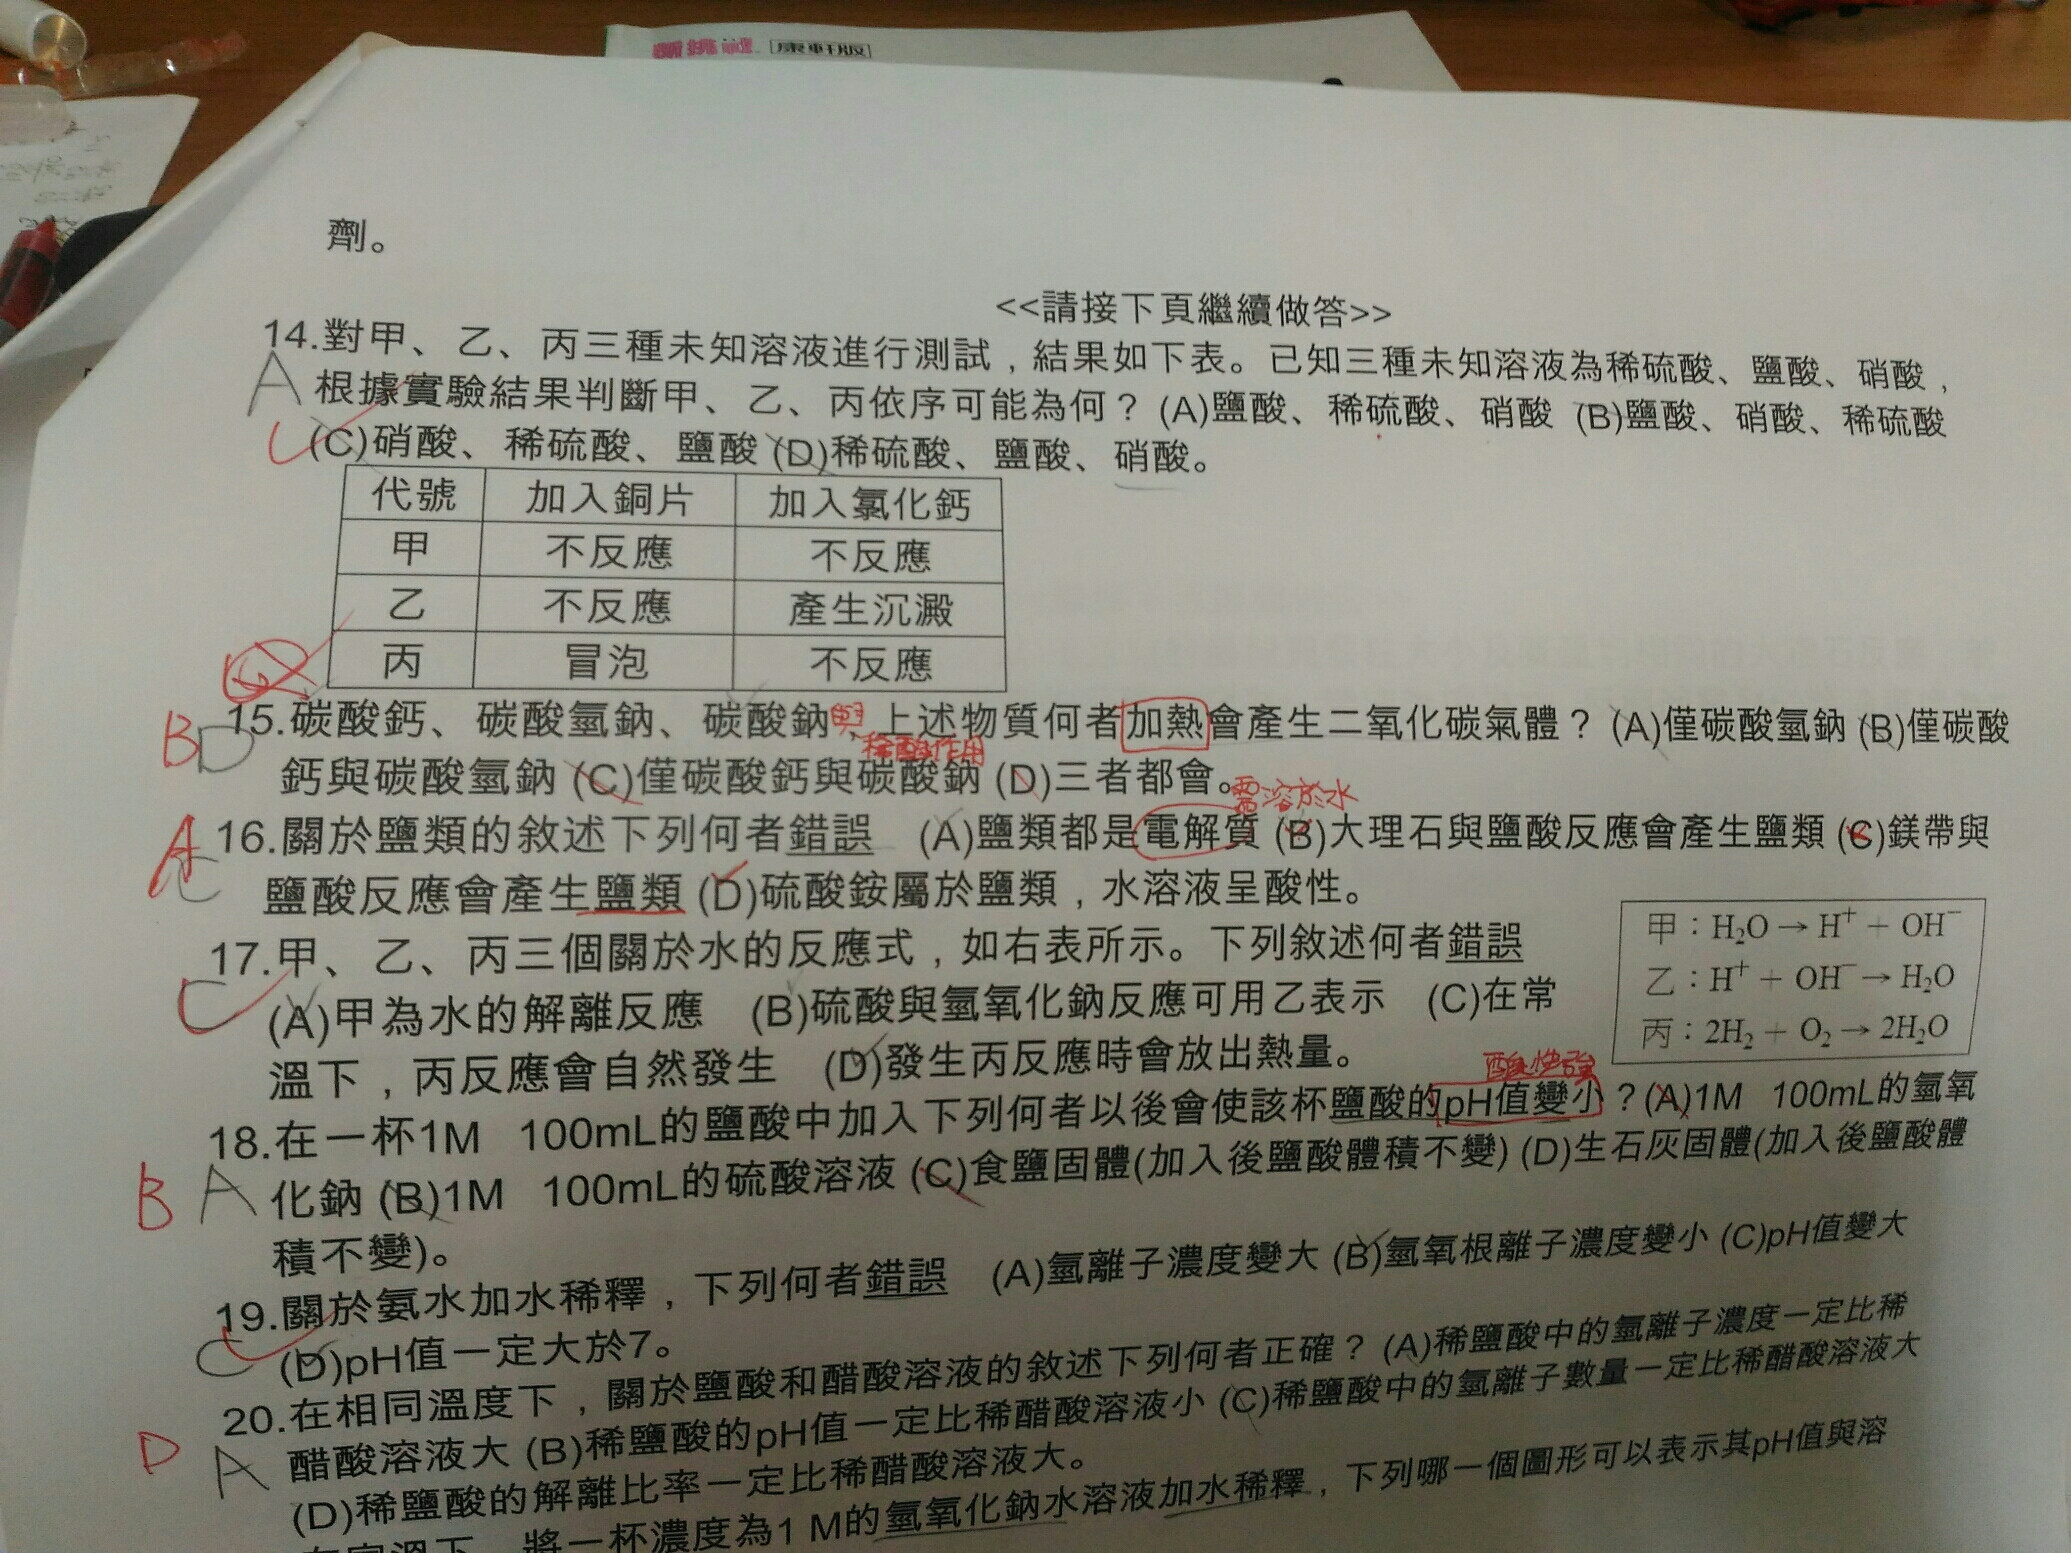 康軒版
劑。
<<請接下頁繼續做答>>
14.對甲、乙、丙三種未知溶液進行測試，結果如下表。已知三種未知溶液為稀硫酸、鹽酸、硝酸，
A 根據實驗結果判斷甲、乙、丙依序可能為何？(A)鹽酸、稀硫酸、硝酸 (B)鹽酸、硝酸、稀硫酸
(C)硝酸、稀硫酸、鹽酸 (D)稀硫酸、鹽酸、硝酸。
代號 加入銅片 加入氯化鈣
甲 不反應 不反應
乙 不反應 產生沉澱
丙 冒泡 不反應
B D 15.碳酸鈣、碳酸氫鈉、碳酸鈉，上述物質何者加熱會產生二氧化碳氣體？(A)僅碳酸氫鈉 (B)僅碳酸
與稀酸作用
鈣與碳酸氫鈉 (C)僅碳酸鈣與碳酸鈉 (D)三者都會。
需溶於水
A C 16.關於鹽類的敘述下列何者錯誤 (A)鹽類都是電解質 (B)大理石與鹽酸反應會產生鹽類 (C)鎂帶與
鹽酸反應會產生鹽類 (D)硫酸銨屬於鹽類，水溶液呈酸性。
17.甲、乙、丙三個關於水的反應式，如右表所示。下列敘述何者錯誤
C (A)甲為水的解離反應 (B)硫酸與氫氧化鈉反應可用乙表示 (C)在常
溫下，丙反應會自然發生 (D)發生丙反應時會放出熱量。
甲：H₂O → H⁺ + OH⁻
乙：H⁺ + OH⁻ → H₂O
丙：2H₂ + O₂ → 2H₂O
18.在一杯1M 100mL的鹽酸中加入下列何者以後會使該杯鹽酸的pH值變小？(A)1M 100mL的氫氧
B A 化鈉 (B)1M 100mL的硫酸溶液 (C)食鹽固體(加入後鹽酸體積不變) (D)生石灰固體(加入後鹽酸體
積不變)。
19.關於氨水加水稀釋，下列何者錯誤 (A)氫離子濃度變大 (B)氫氧根離子濃度變小 (C)pH值變大
C (D)pH值一定大於7。
20.在相同溫度下，關於鹽酸和醋酸溶液的敘述下列何者正確？(A)稀鹽酸中的氫離子濃度一定比稀
D A 醋酸溶液大 (B)稀鹽酸的pH值一定比稀醋酸溶液小 (C)稀鹽酸中的氫離子數量一定比稀醋酸溶液大
(D)稀鹽酸的解離比率一定比稀醋酸溶液大。
將一杯濃度為1 M的氫氧化鈉水溶液加水稀釋，下列哪一個圖形可以表示其pH值與溶